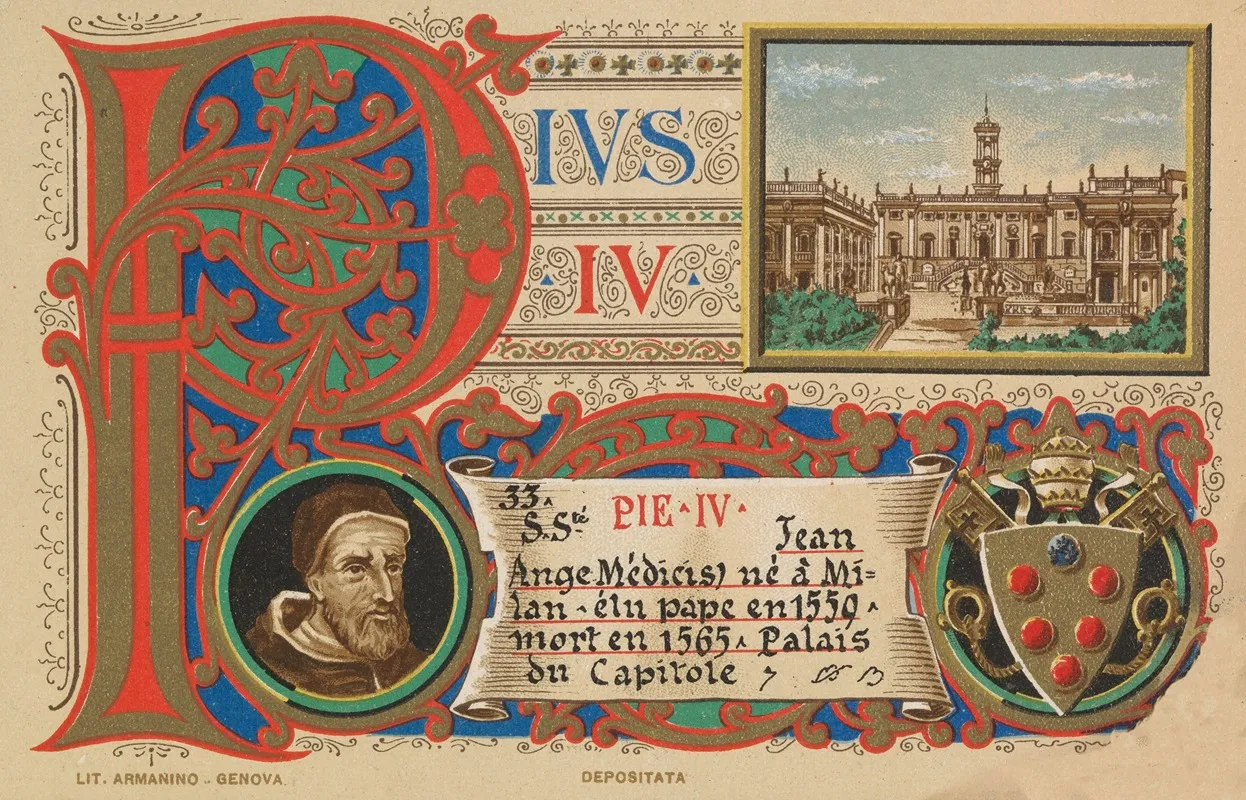 PIUS
IV
33.
S.Sté PIE·IV·
Jean
Ange Médicis) né à Mi=
lan · élu pape en 1559 ·
mort en 1565 · Palais
du Capitole
LIT. ARMANINO - GENOVA.
DEPOSITATA